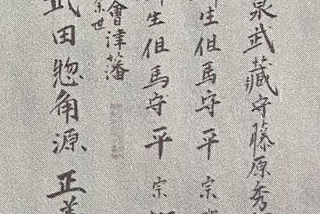 泉武藏守藤原秀
生但馬守平宗
生但馬守平宗
會津藩
武田惣角源正義